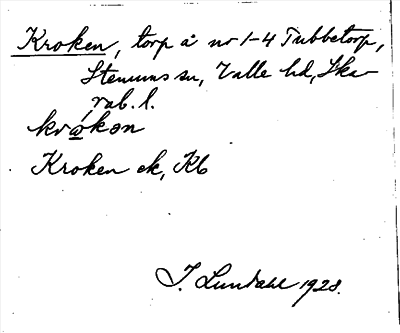 Kroken, torp å nr 1-4 Tubbetorp,
Stenums sn, Valle hd, Ska-
rab. l.
krókən
Kroken ek, Kb
I. Lundahl 1928.